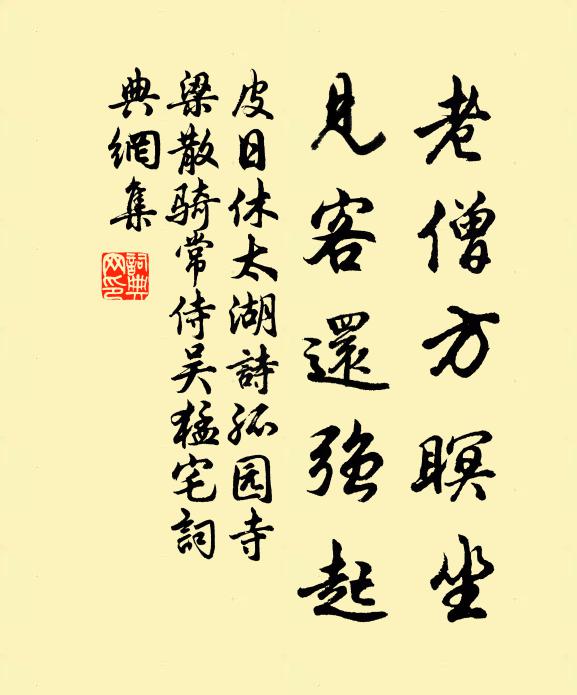 老僧方瞑坐
見客還強起
皮日休太湖詩孤园寺
梁散騎常侍吴猛宅詞
典網集
詞典
网印